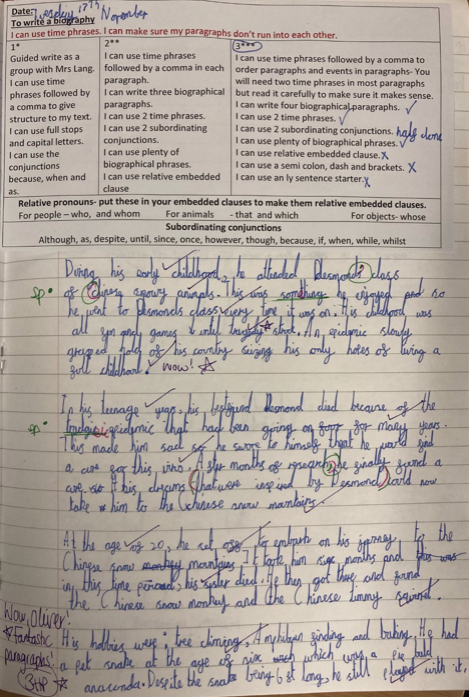 Date: Tuesday 17th November
To write a biography
I can use time phrases. I can make sure my paragraphs don't run into each other.
1*
Guided write as a
group with Mrs Lang.
I can use time
phrases followed by
a comma to give
structure to my text.
I can use full stops
and capital letters.
I can use the
conjunctions
because, when and
as.
2**
I can use time phrases
followed by a comma in each
paragraph.
I can write three biographical
paragraphs.
I can use 2 time phrases.
I can use 2 subordinating
conjunctions.
I can use plenty of
biographical phrases.
I can use relative embedded
clause
3***
I can use time phrases followed by a comma to
order paragraphs and events in paragraphs- You
will need two time phrases in most paragraphs
but read it carefully to make sure it makes sense.
I can write four biographical paragraphs.
I can use 2 time phrases.
I can use 2 subordinating conjunctions. half done
I can use plenty of biographical phrases.
I can use relative embedded clause.
I can use a semi colon, dash and brackets.
I can use an ly sentence starter.
Relative pronouns- put these in your embedded clauses to make them relative embedded clauses.
For people – who, and whom For animals - that and which For objects- whose
Subordinating conjunctions
Although, as, despite, until, since, once, however, though, because, if, when, while, whilst
During his early childhood, he attended Desmond's class
sp of animals. This was something he enjoyed and so
he went to Desmonds class every time it was on. His childhood was
all fun and games until struck. An epidemic slowly
grasped hold of his country seizing his only hopes of living a
full childhood. Wow!
In his teenage years, his bestfriend Desmond died because of the
sp epidemic that had been going on for many years.
This made him sad so he swore to himself that he would find
a cure for this. After months of research, he finally found a
cure so his dreams (that were inspired by Desmond) could now
take him to the Chinese snow mountains.
At the age of 20, he set off to embark on his journey to the
Chinese snow mountains. It took him six months and
in this time his sister died. He then got there and found
the Chinese snow monkey and the Chinese squirrel.
Wow, Oliver!
Fantastic
paragraphs!
3HP
His hobbies were; tree climbing, finding and baking. He had
a pet snake at the age of six which was a
anaconda. Despite the snake being 6 ft long, he still played with it,